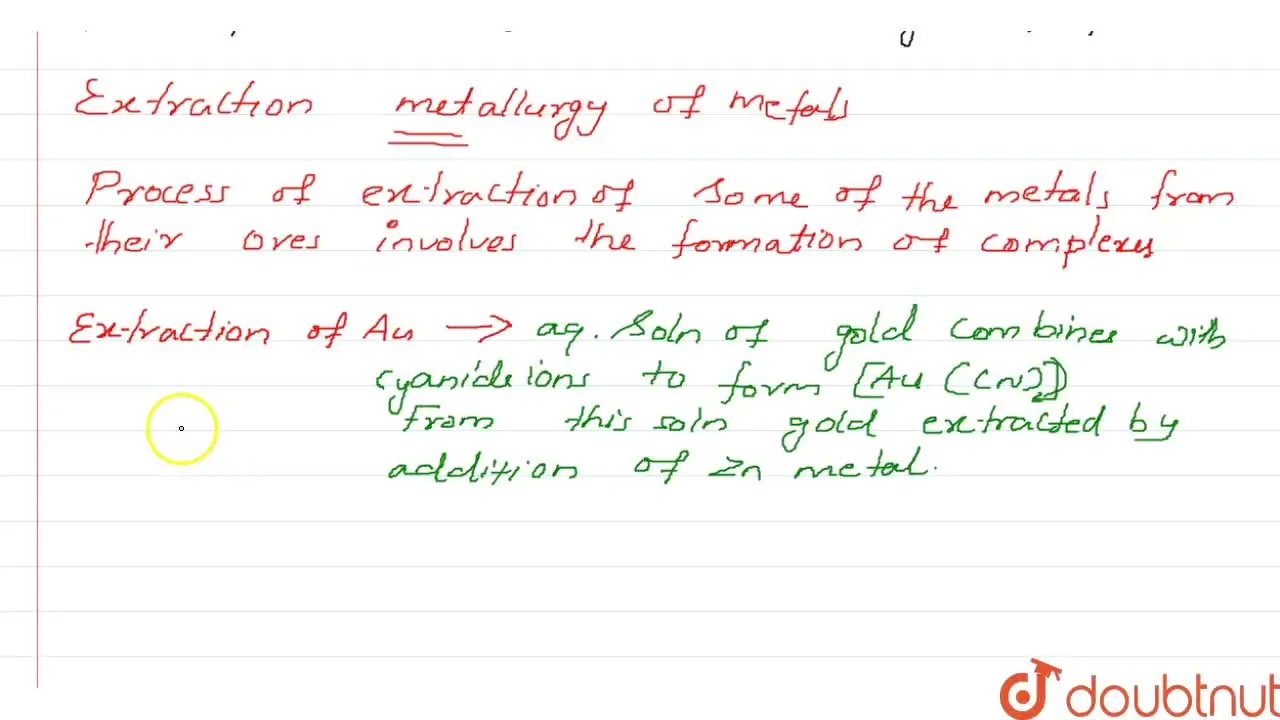 Extraction metallurgy of metals
Process of extraction of some of the metals from
their ores involves the formation of complexes
Extraction of Au → aq. Soln of gold combines with
cyanide ions to form [Au(CN)2]
From this soln gold extracted by
addition of Zn metal.
doubtnut